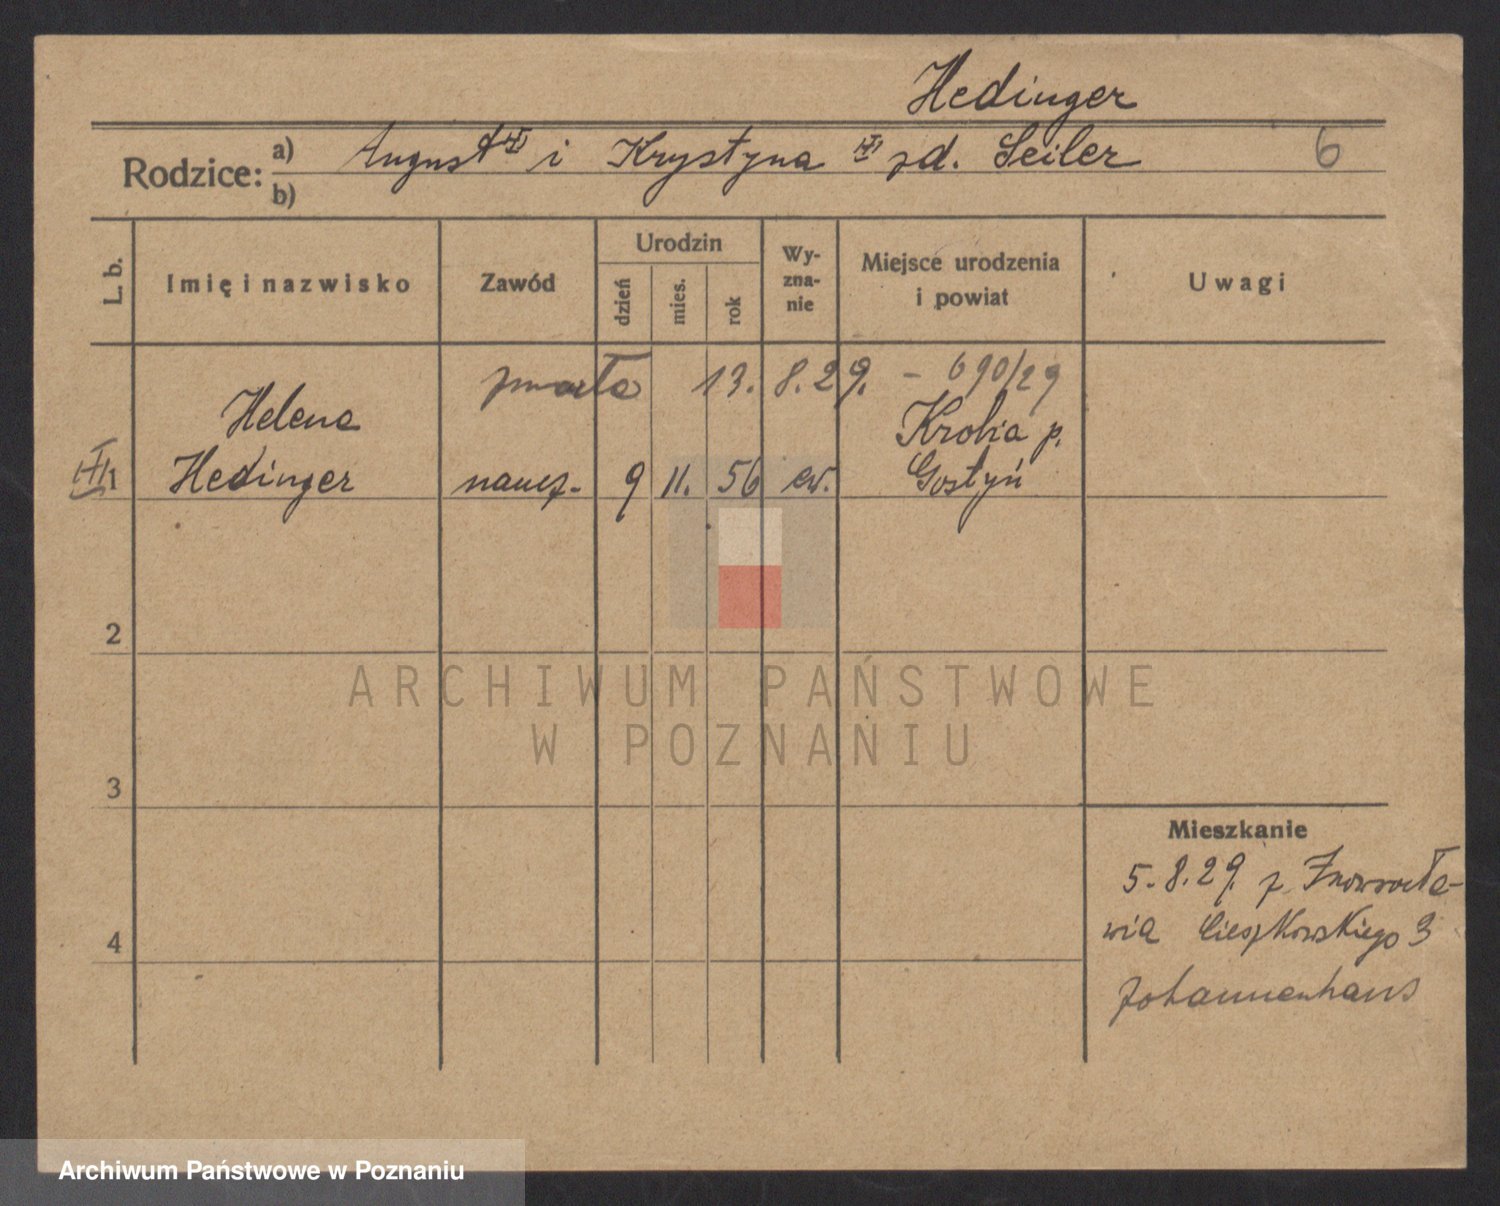 Hedinger
Rodzice: a) August i Krystyna zd. Seiler 6
b)
L. b. Imię i nazwisko Zawód Urodzin dzień mies. rok Wy-zna-nie Miejsce urodzenia i powiat Uwagi
zmarła 13. 8. 29. – 690/29
Helena Krobia p.
1 Hedinger naucz. 9 11. 56 ew. Gostyń
2
ARCHIWUM PAŃSTWOWE
W POZNANIU
3
Mieszkanie
5.8.29. z Inowrocła-
wia Cieszkowskiego 3
4
Johannenhaus
Archiwum Państwowe w Poznaniu